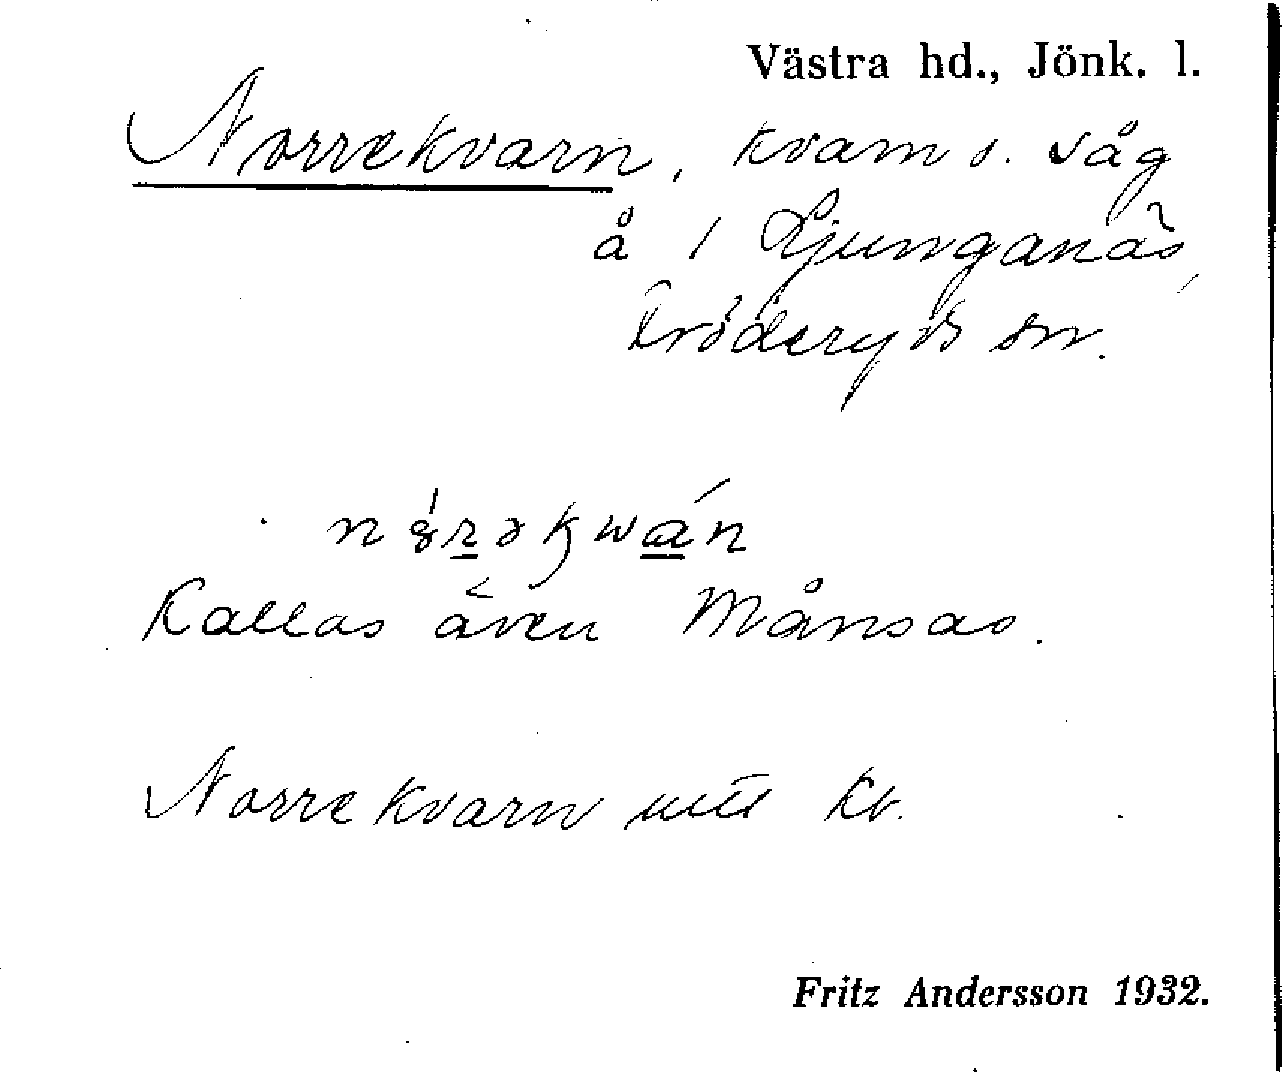 Västra hd., Jönk. l.
Norrekvarn, kvarn o. såg
å 1 Ljunganäs,
Fröderyds sn.
Kallas även Månsas.
Norrekvarn kv.
Fritz Andersson 1932.